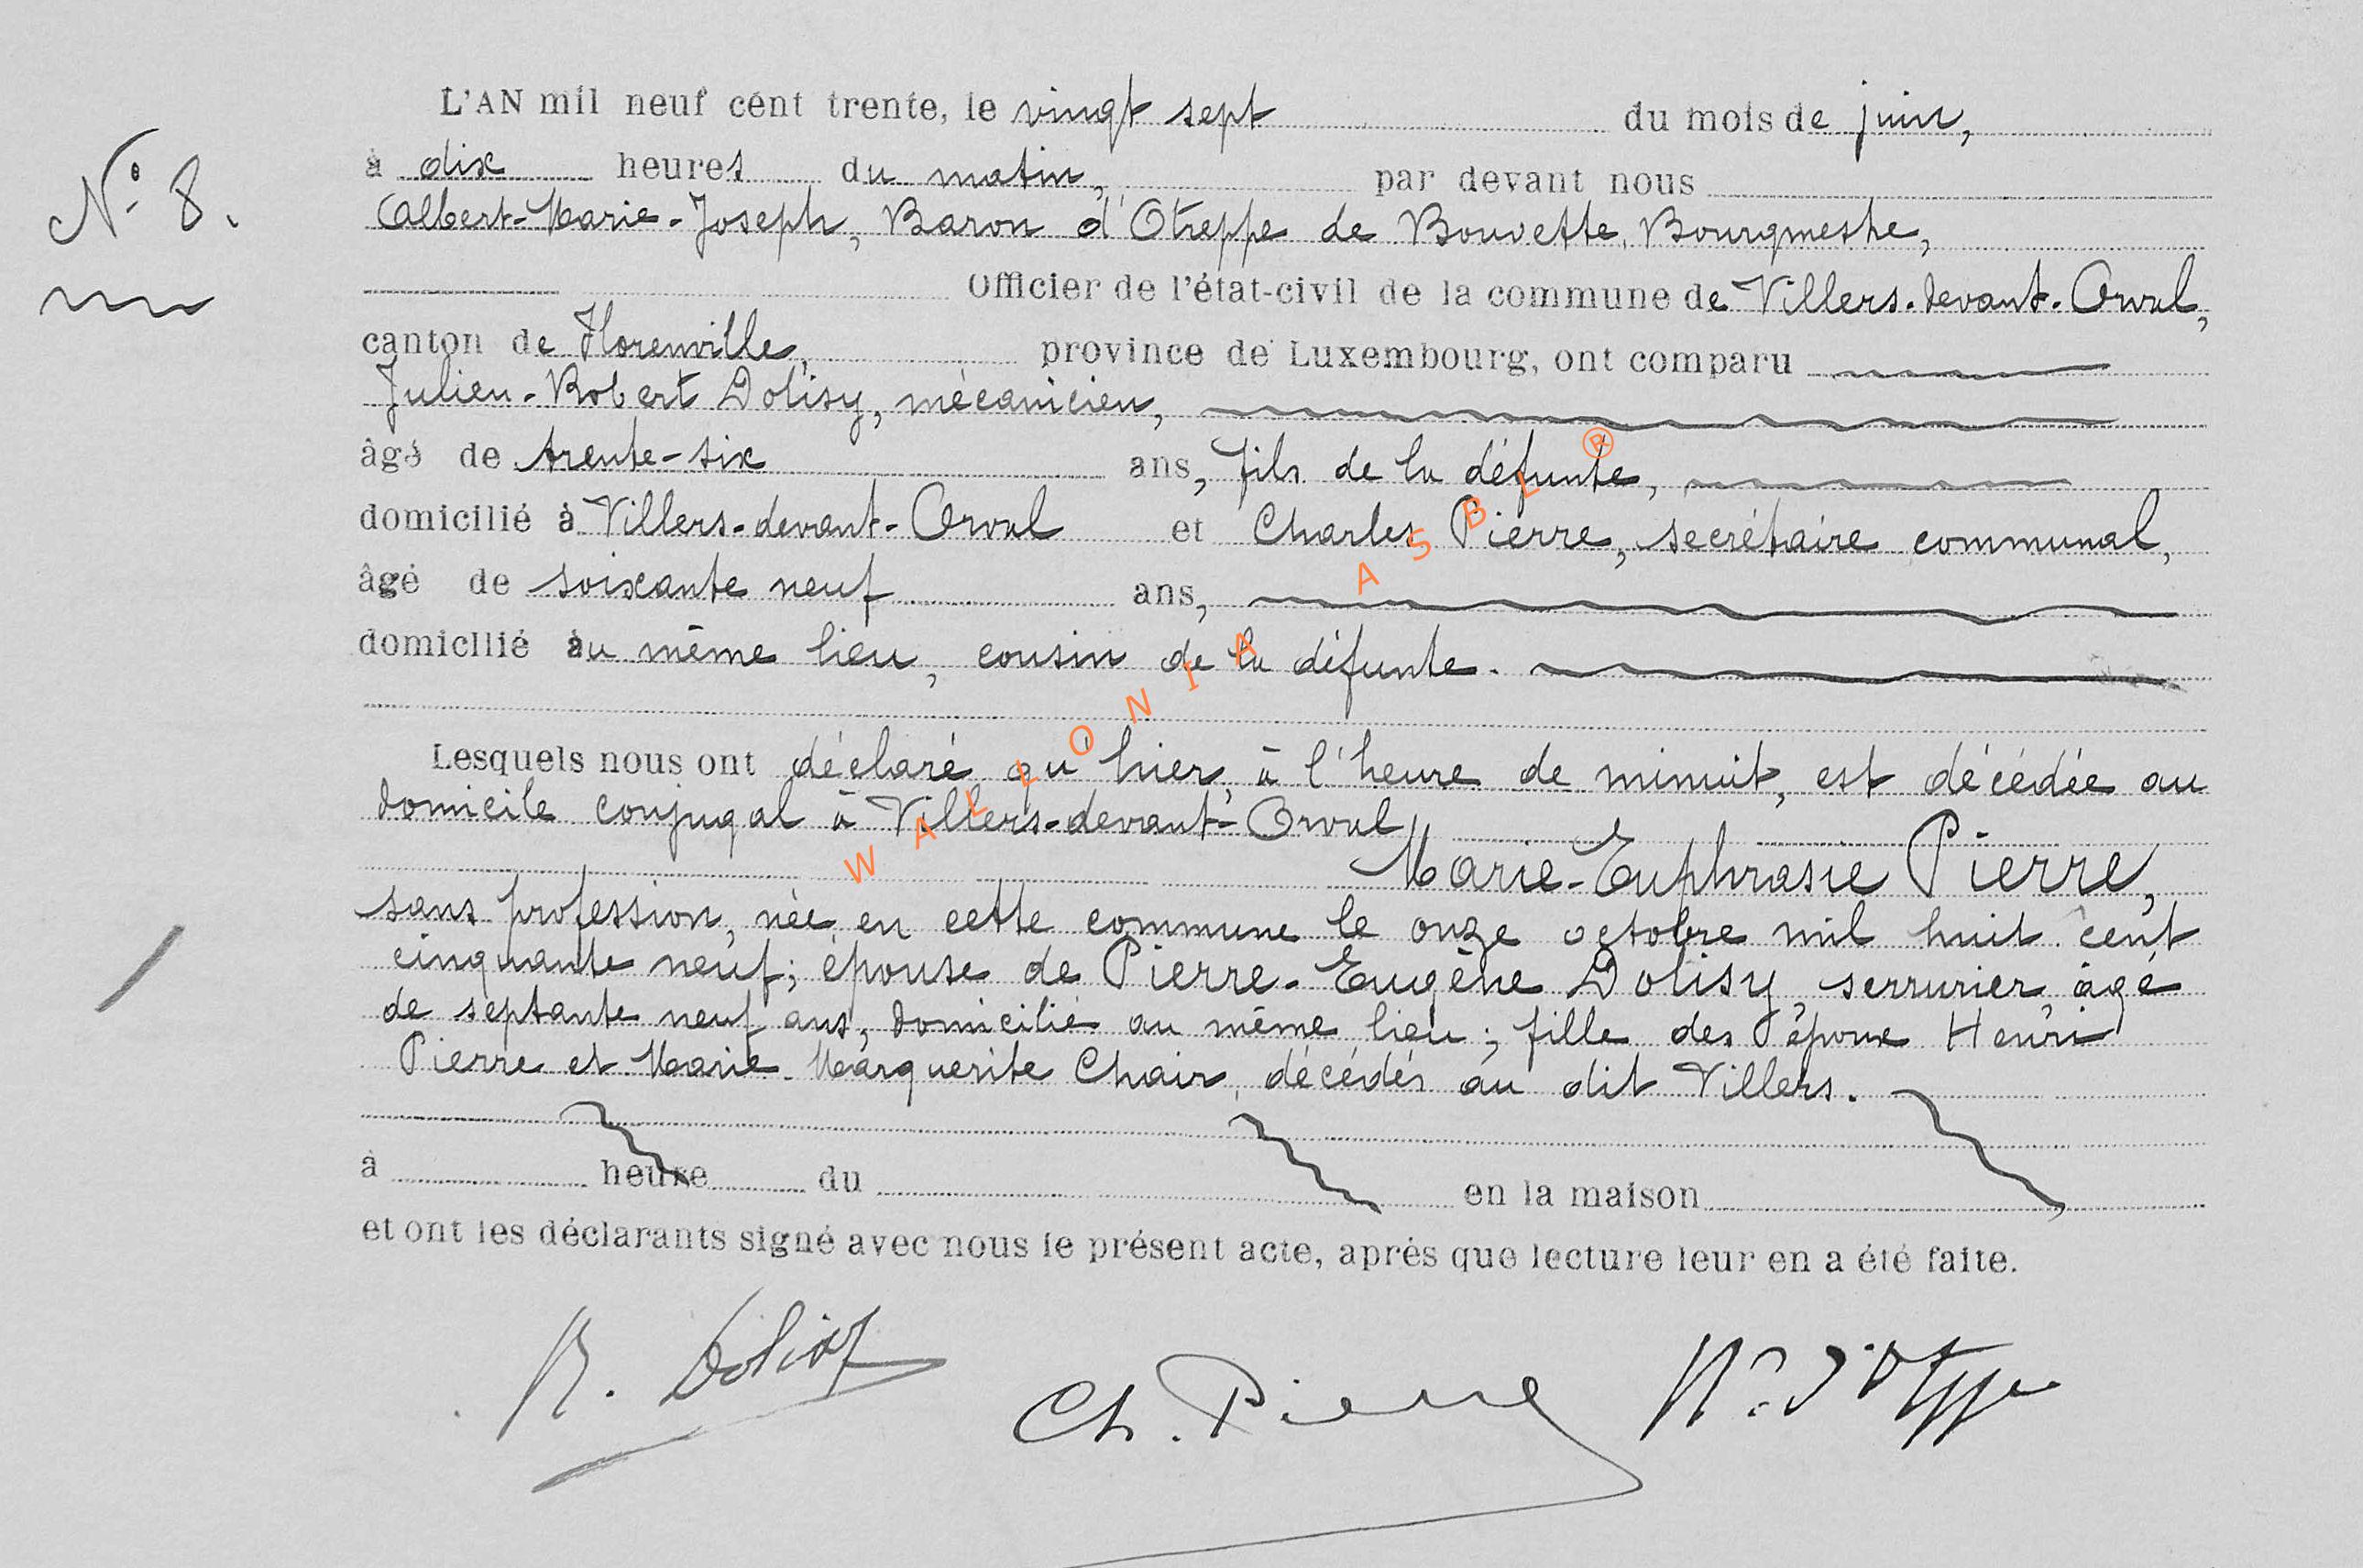 L'AN mil neuf cent trente, le vingt sept du mois de juin,
N° 8.
à dix heures du matin, par devant nous
Albert-Marie-Joseph, Baron d'Otreppe de Bouvette, Bourgmestre,
Officier de l'état-civil de la commune de Villers-devant-Orval,
canton de Florenville, province de Luxembourg, ont comparu
Julien-Robert Dolisy, mécanicien,
âgé de trente-six ans, fils de la défunte,
domicilié à Villers-devant-Orval et Charles Pierre, secrétaire communal,
âgé de soixante neuf ans,
domicilié au même lieu, cousin de la défunte.
Lesquels nous ont déclaré qu'hier, à l'heure de minuit, est décédée au
domicile conjugal à Villers-devant-Orval,
Marie-Euphrasie Pierre,
sans profession, née en cette commune le onze octobre mil huit cent
cinquante neuf; épouse de Pierre-Eugène Dolisy, serrurier, âgé
de septante neuf ans, domicilié au même lieu; fille des époux Henri
Pierre et Marie-Marguerite Chair, décédés au dit Villers.
à heure du en la maison
et ont les déclarants signé avec nous le présent acte, après que lecture leur en a été faite.
R. Dolisy
Ch. Pierre
d'Otreppe
WALLONIA ASBL ®